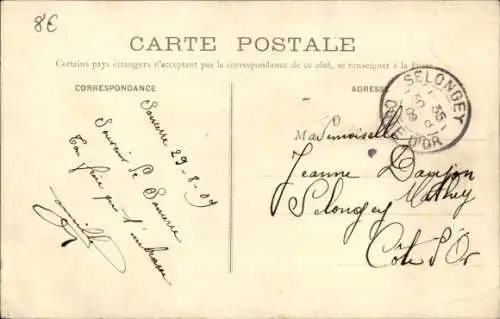 8€
CARTE POSTALE
Certains pays étrangers n'acceptent pas la correspondance de ce côté, se renseigner à la Poste
CORRESPONDANCE
ADRESSE
SELONGEY
CÔTE D'OR
Sancerre 29-8-09
Souvenir de Sancerre
Ton frère qui t'embrasse
Mademoiselle
Jeanne
Mathey
Selongey
Côte d'Or